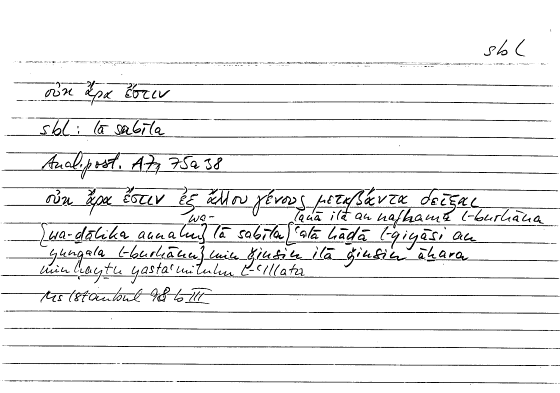 sbl
οὐκ ἄρα ἔστιν
sbl: lā sabīla
Anal. post. A7, 75a38
οὐκ ἄρα ἔστιν ἐξ ἄλλου γένους μεταβάντα δεῖξαι
wa- lanā ilā an nafhama l-burhāna
{wa-ḏālika annahu} lā sabīla {ʿalā hāḏā l-qiyāsi an
yunqala l-burhānu} min ǧinsin ilā ǧinsin āḫara
min ḥayṯu yastaʿmiluhu l-ʿillata
Ms Istanbul 98 b III